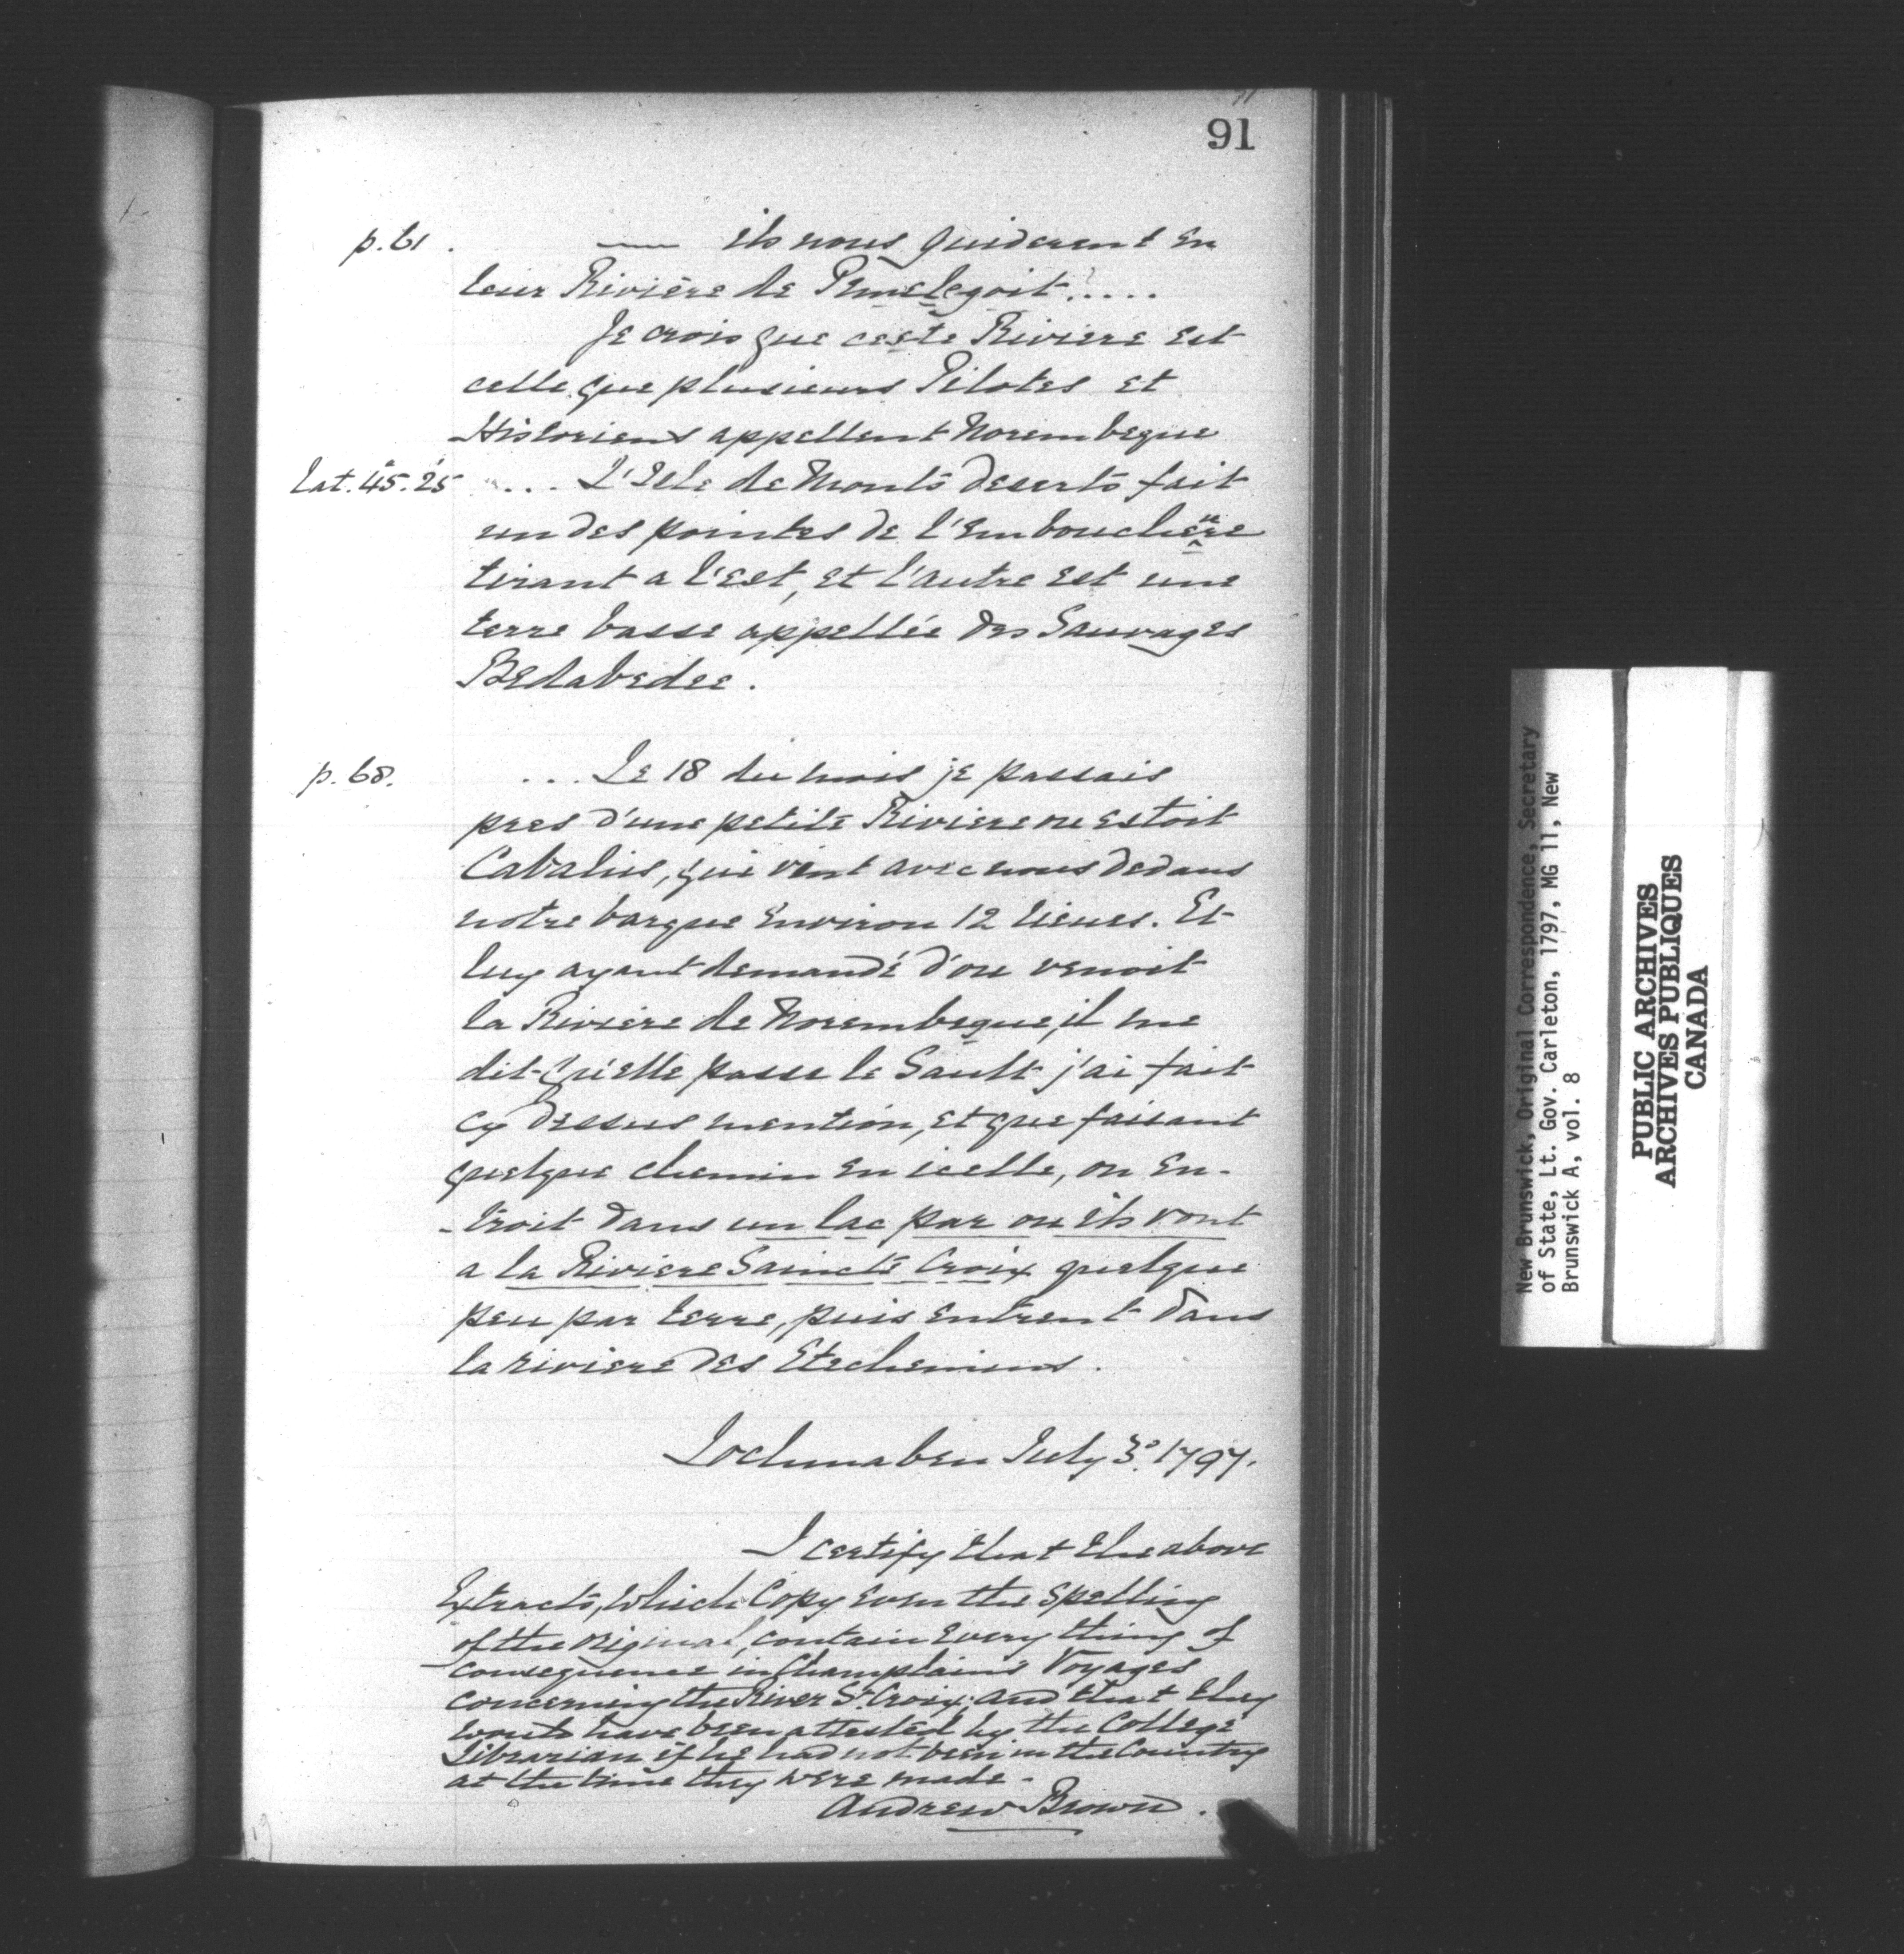 91
p. 61. — ils nous guiderent en
leur Rivière de Pemetegoit.....
Je crois que ceste Riviere est
celle que plusieurs Pilotes et
Historiens appellent Norembegue
Lat. 45°. 25' .... L'Isle de Monts deserts fait
un des pointes de l'embouchure
tirant a l'Est, et l'autre est une
terre basse appellée des Sauvages
Bedabedec.
p. 68. ... Le 18 du mois je passais
pres d'une petite Riviere ou estoit
Cabahis, qui vint avec nous dedans
notre barque environ 12 lieues. Et
luy ayant demandé d'ou venoit
la Riviere de Norembegue, il me
dit qu'elle passe le Sault j'ai fait
cy dessus mention, et que faisant
quelque chemin en icelle, on en-
-troit dans un lac par ou ils vont
a la Riviere Saincte Croix quelque
peu par terre, puis entrent dans
la riviere des Etechemins.
Lochmaben July 3d. 1797.
I certify that the above
Extracts, which Copy even the Spelling
of the original, contain Every thing of
consequence in Champlain's Voyages
concerning the River St. Croix; and that they
would have been attested by the College
Librarian if he had not been in the Country
at the time they were made.
Andrew Brown.
New Brunswick, Original Correspondence, Secretary
of State, Lt. Gov. Carleton, 1797, MG 11, New
Brunswick A, vol. 8
PUBLIC ARCHIVES
ARCHIVES PUBLIQUES
CANADA